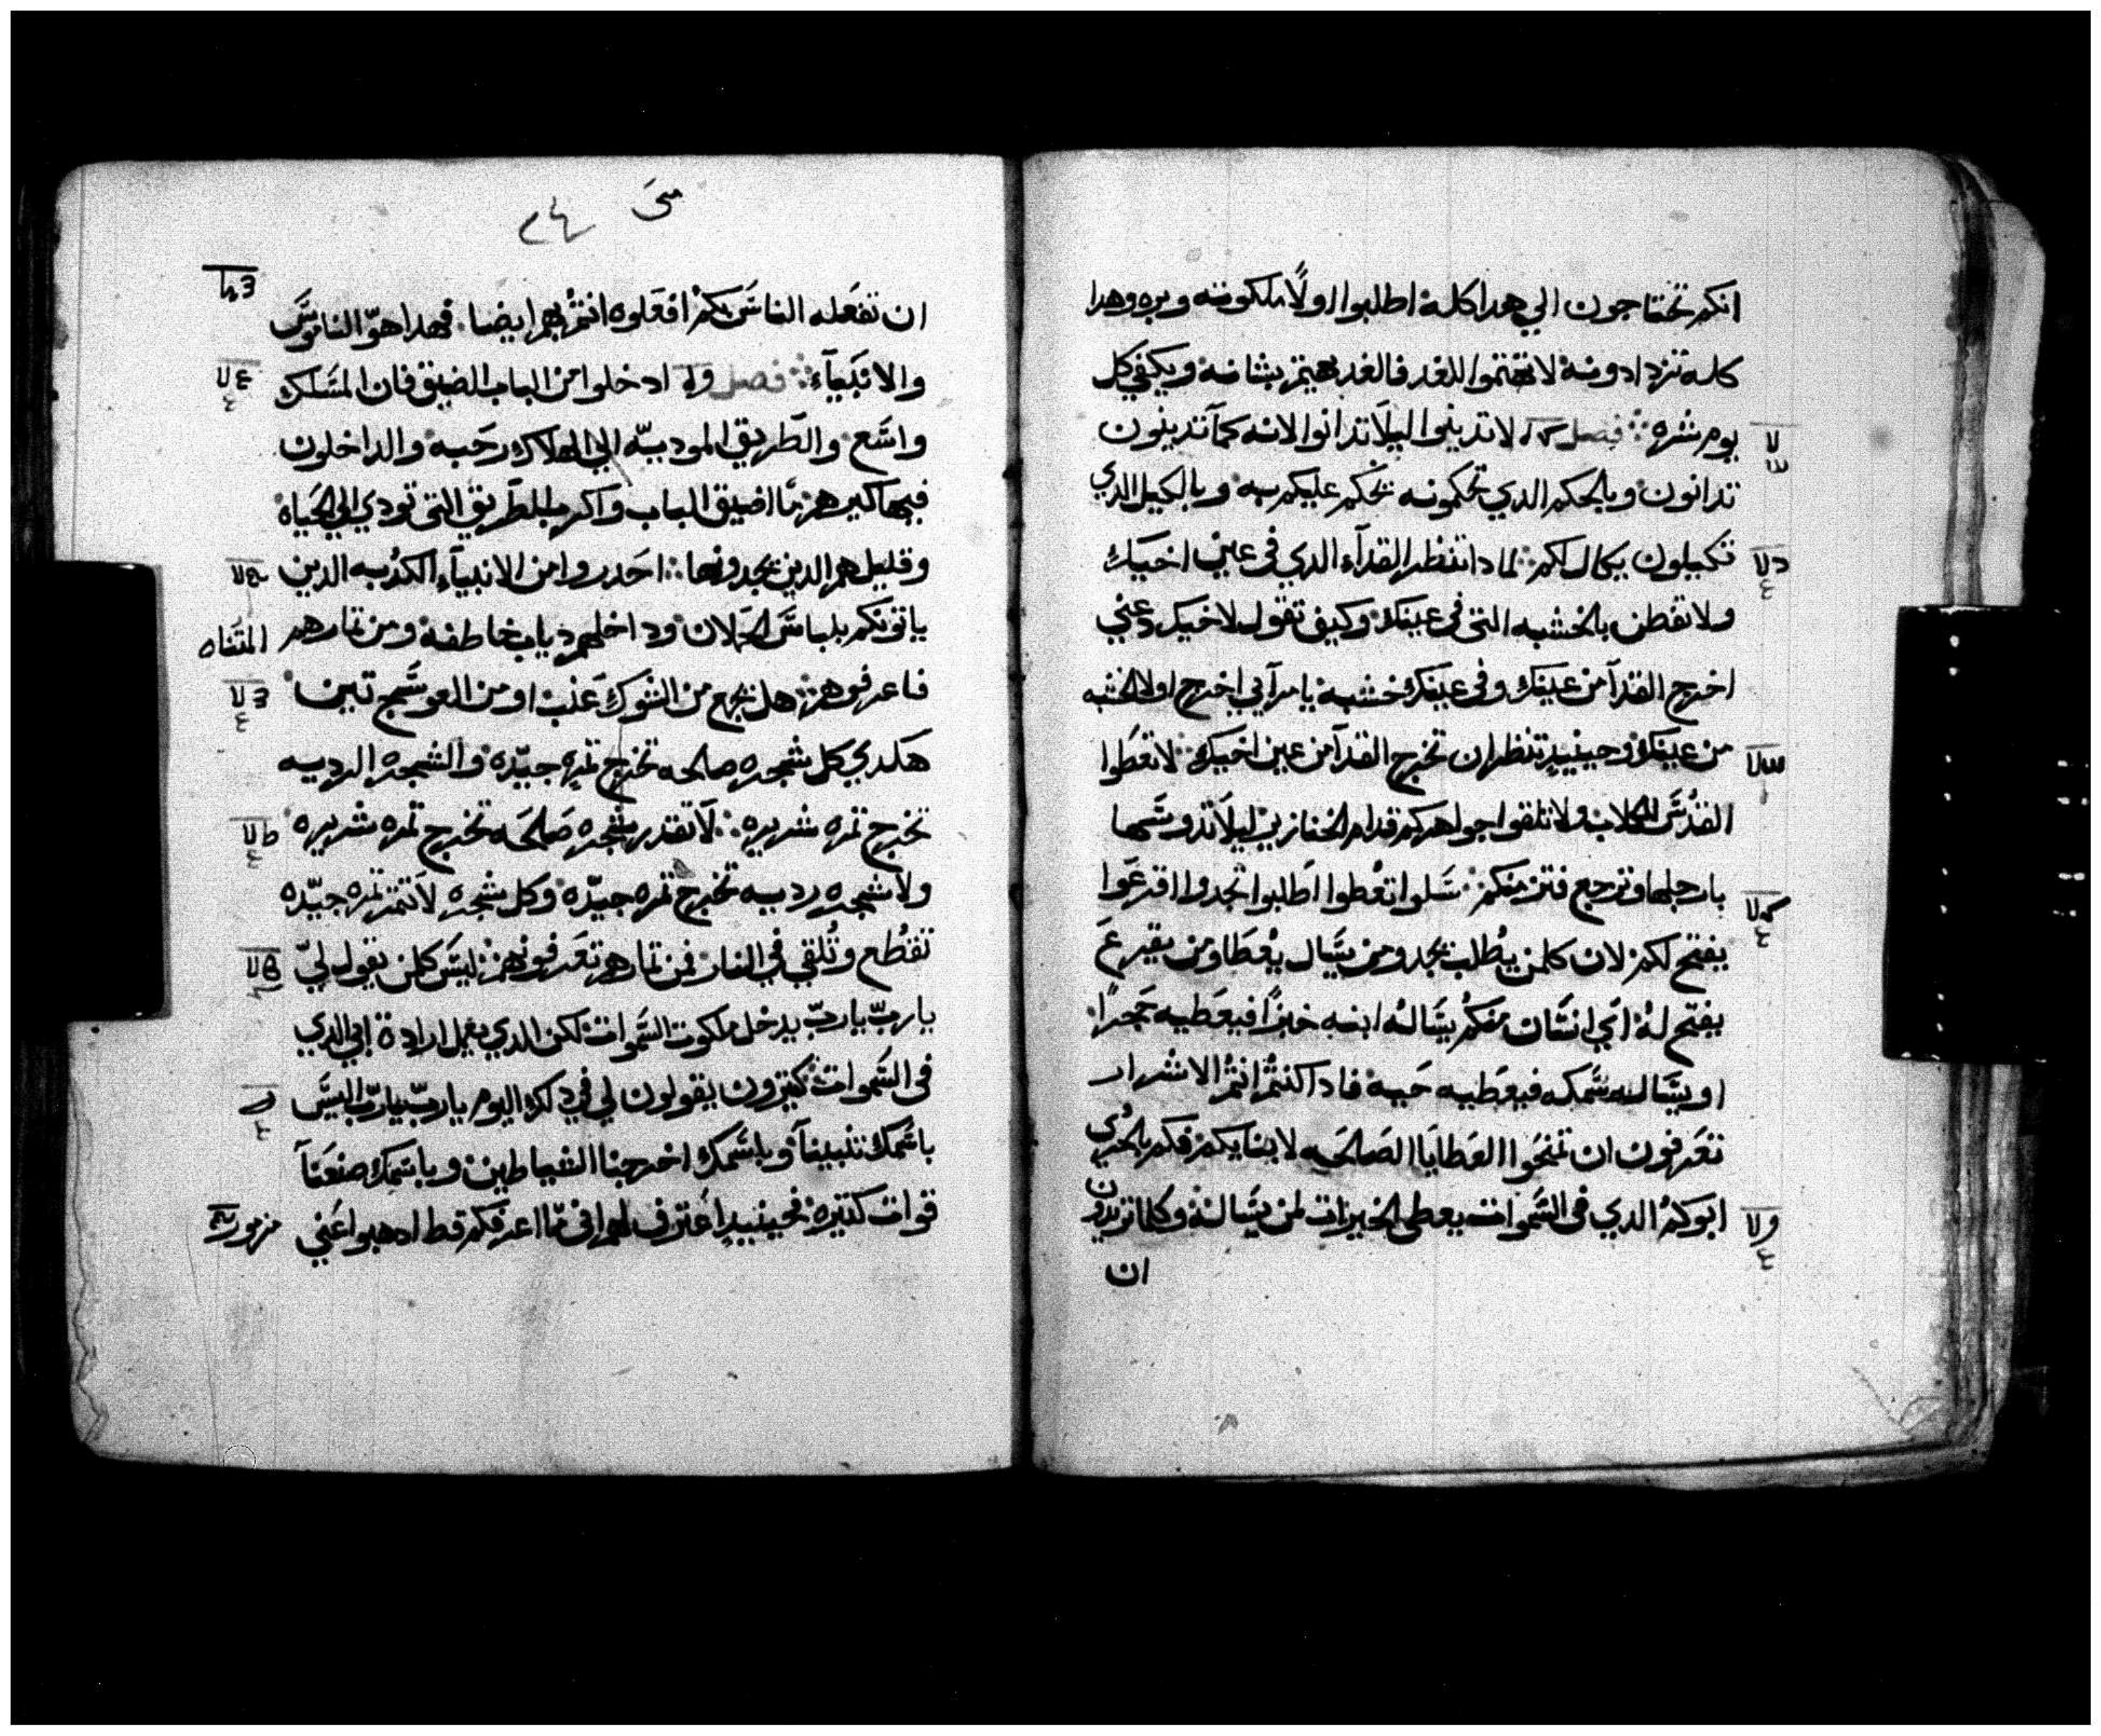 انكم تحتاجون الي هدا كله اطلبوا اولاً ملكوته وبره وهدا
كله تزدادونه لا تهتموا للغد فالغد يهتم بشانه ويكفي كل
يوم شره فصل لا تدينوا ليلا تدانوا لانه كما تدينون
تدانون وبالحكم الدي تحكمونه يحكم عليكم به وبالكيل الدي
تكيلون يكال لكم لمادا تنظر القدآء الدي في عين اخيك
ولا تفطن بالخشبه التي في عينك وكيف تقول لاخيك دعني
اخرج القدآ من عينك وفي عينك خشبه يا مرآيي اخرج اولا الخشبه
من عينك وحينيدٍ تنظر ان تخرج القدآ من عين اخيك لا تعطوا
القدس للكلاب ولا تلقوا جواهركم قدام الخنازير ليلا تدوسها
بارجلها وترجع فتزمنكم سلوا تعطوا اطلبوا تجدوا اقرعوا
يفتح لكم لان كلمن يطلب يجد ومن يسال يعطا ومن يقرع
يفتح له اي انسان منكم يساله ابنه خبزًا فيعطيه حجرًا
او يساله سمكه فيعطيه حيه فادا كنتم انتم الاشرار
تعرفون ان تمنحوا العطايا الصالحه لابنايكم فكم بالحري
ابوكم الدي في السموات يعطي الخيرات لمن يساله وكلما تريدون
ان
متى
ان تفعله الناس بكم افعلوه انتم بهم ايضا فهدا هو الناموس
والانبيآء فصل ادخلوا من الباب الضيق فان المسلك
واسع والطريق الموديه الي الهلاك رحبه والداخلون
فيها كير هم ما اضيق الباب واكرب الطريق التي تودي الي الحياه
وقليل هم الدين يجدونها احدروا من الانبيآء الكدبه الدين
ياتونكم بلباس الحملان وداخلهم دياب خاطفه ومن تمارهم
فاعرفوهم هل يجمع من الشوك عنب او من العوسج تين
هكدي كل شجره صالحه تخرج تمره جيّده والشجره الرديه
تخرج تمره شريره لا تقدر شجره صالحه تخرج تمره شريره
ولا شجره رديه تخرج تمره جيّده وكل شجره لا تتمر تمره جيّده
تقطع وتلقي في النار فمن تمارهم تعرفونهم ليس كلمن يقول لي
يا رب يا رب يدخل ملكوت السموات لكن الدي يعمل ارادة ابي الدي
في السموات كتيرون يقولون لي في دلك اليوم يا رب يا رب اليس
باسمك تنبينآ وباسمك اخرجنا الشياطين وباسمك صنعنآ
قوات كتيره فحينيدٍ اعترف لهم اني ما اعرفكم قط ادهبوا عني